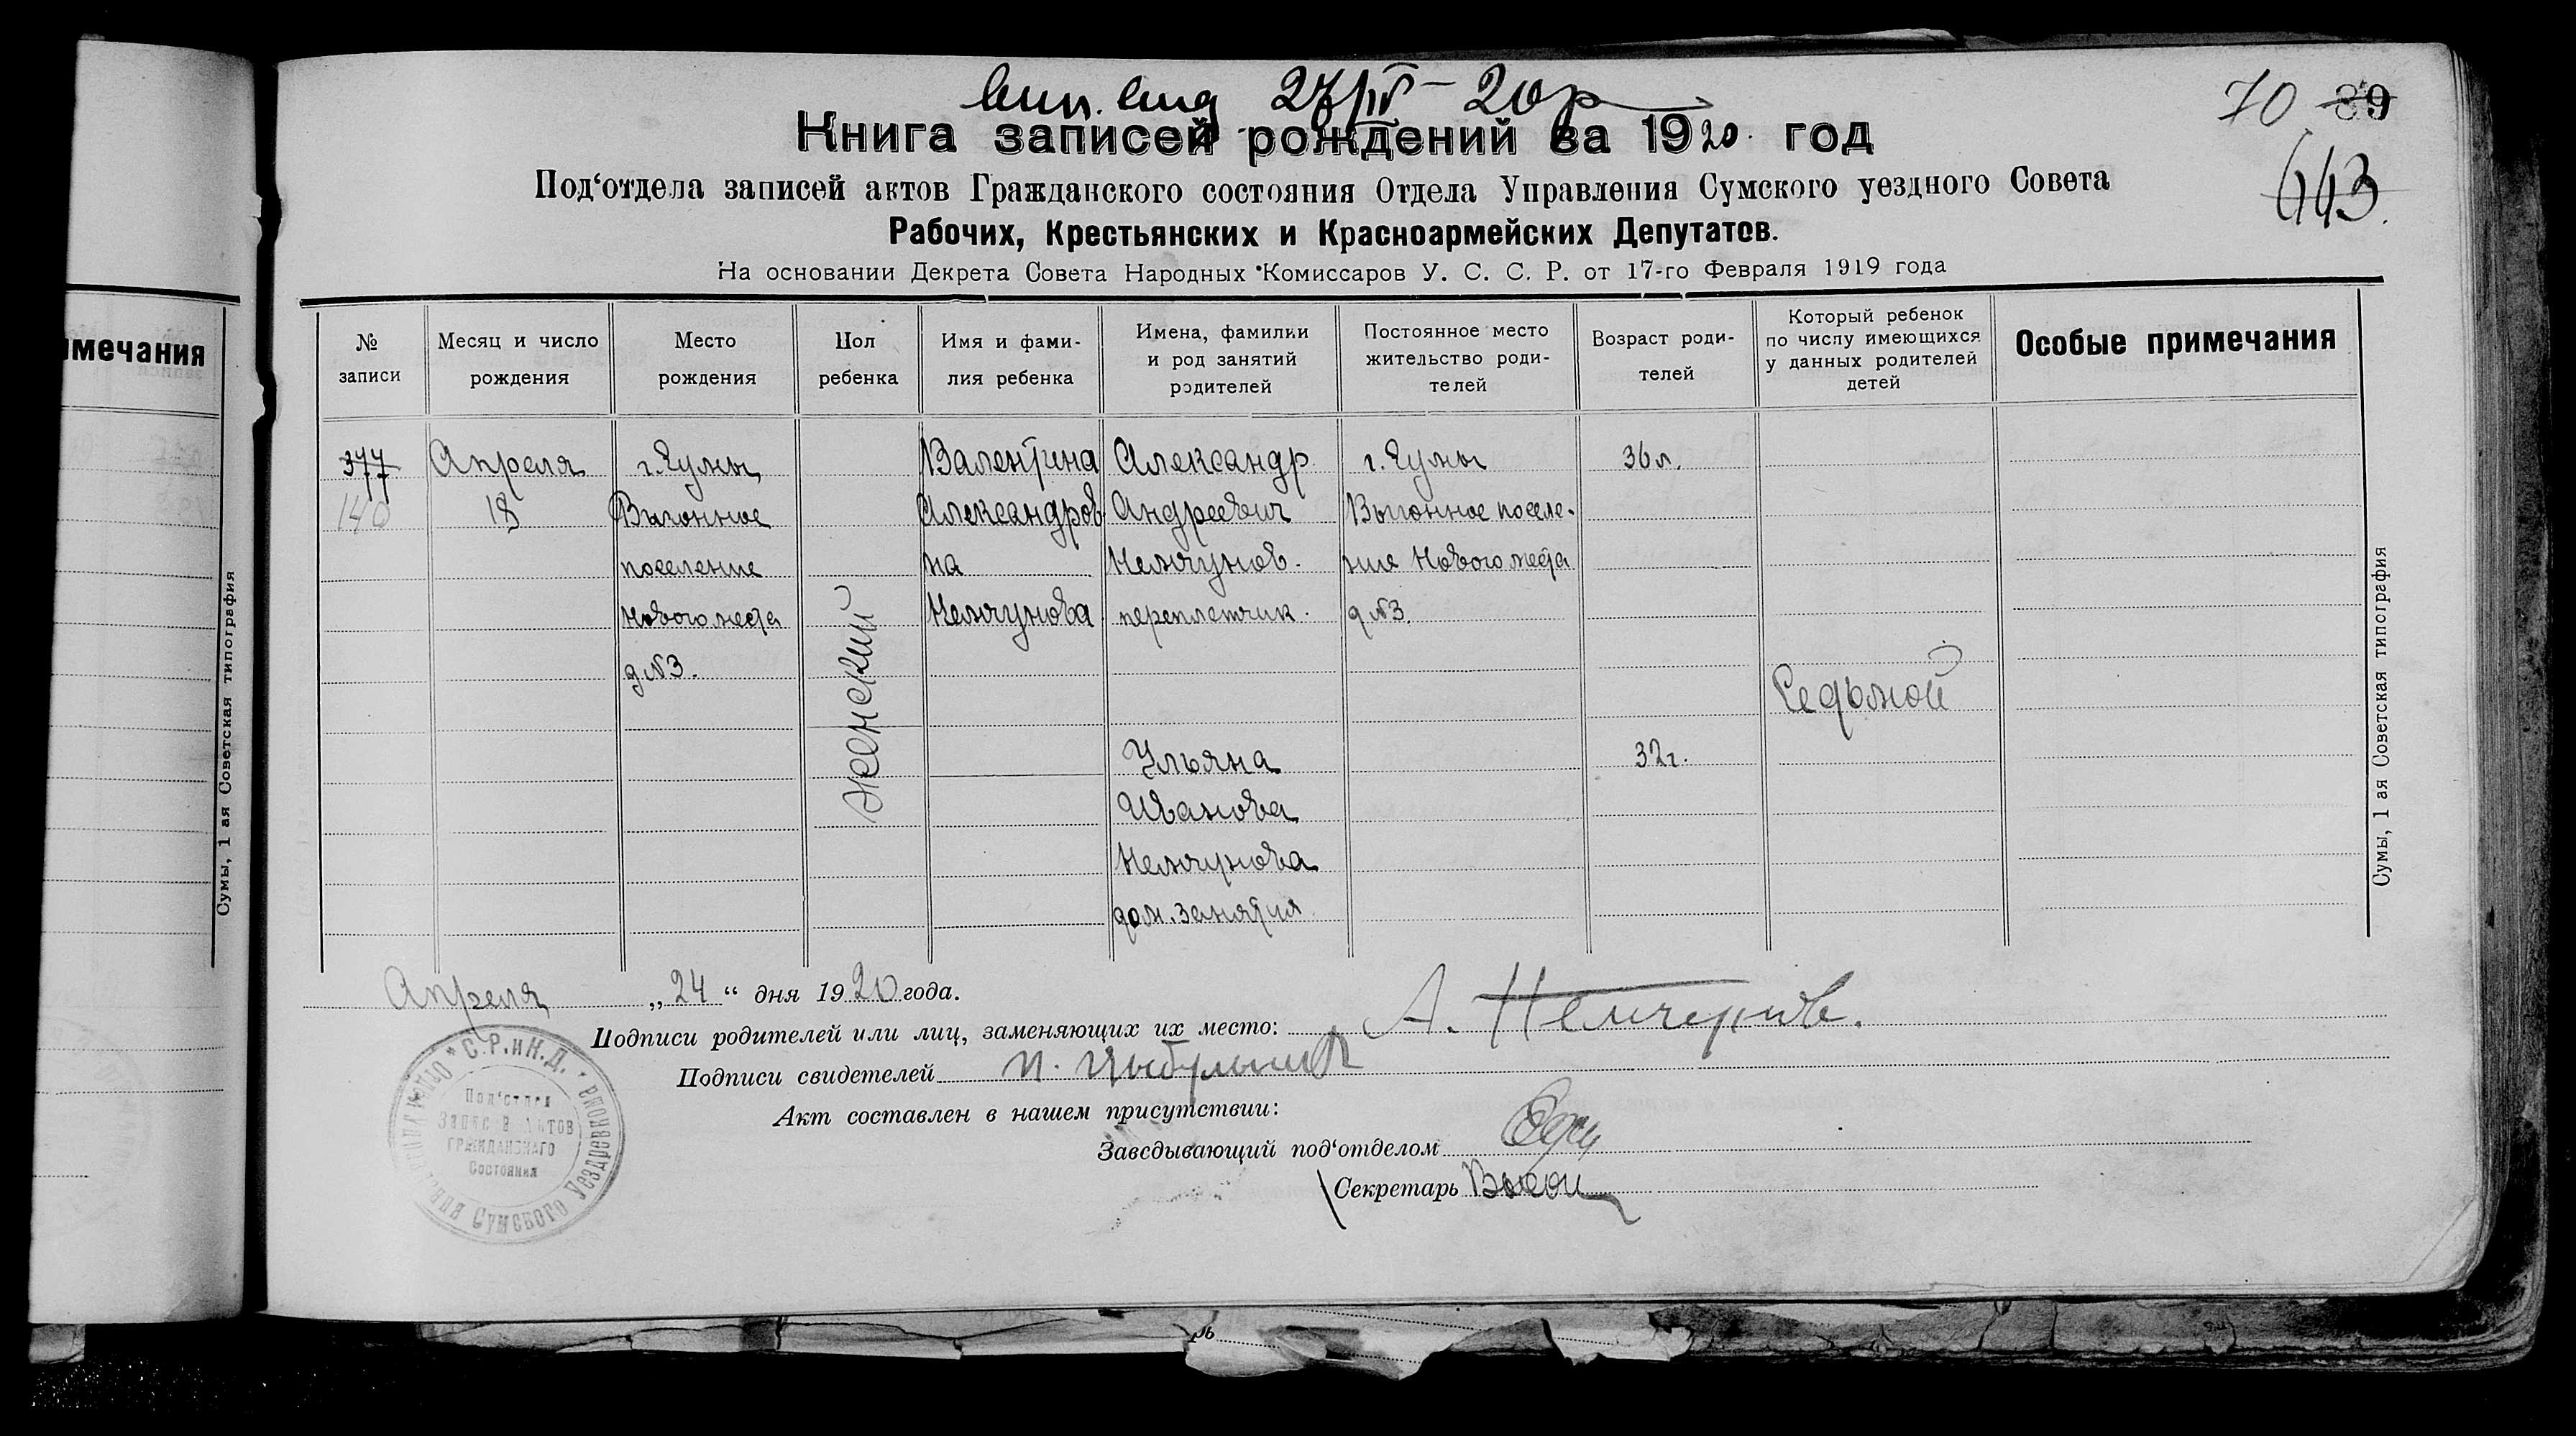 27/IV - 20 р
70 89
443.
Книга записей рождений за 1920. год
Под‘отдела записей актов Гражданского состояния Отдела Управления Сумского уездного Совета
Рабочих, Крестьянских и Красноармейских Депутатов.
На основании Декрета Совета Народных Комиссаров У. С. С. Р. от 17-го Февраля 1919 года
имечания
№
записи
Месяц и число
рождения
Место
рождения
Пол
ребенка
Имя и фами-
лия ребенка
Имена, фамилии
и род занятий
родителей
Постоянное место
жительство роди-
телей
Возраст роди-
телей
Который ребенок
по числу имеющихся
у данных родителей
детей
Особые примечания
377
140
Апреля
18
г. Сумы,
Выгонное
поселение
Нового места
д №3.
женский
Валентина
Александров
на
Немчунова
Александр
Андреевич
Немчунов.
переплетчик.
Ульяна
Иванова
Немчунова
дом. занятия
г. Сумы
Выгонное поселе-
ние Нового места
д №3.
36 л.
32 г.
Седьмой
Апреля „24“ дня 1920 года.
Подписи родителей или лиц, заменяющих их место: А. Немчунов.
Подписи свидетелей
Акт составлен в нашем присутствии:
Заведывающий под‘отделом
Секретарь
С.Р.иК.Д.
Под‘отдел
Записей Актов
Гражданскаго
Состояния
Сумского Уездревкома
Сумы, 1 ая Советская типография
Сумы, 1 ая Советская типография